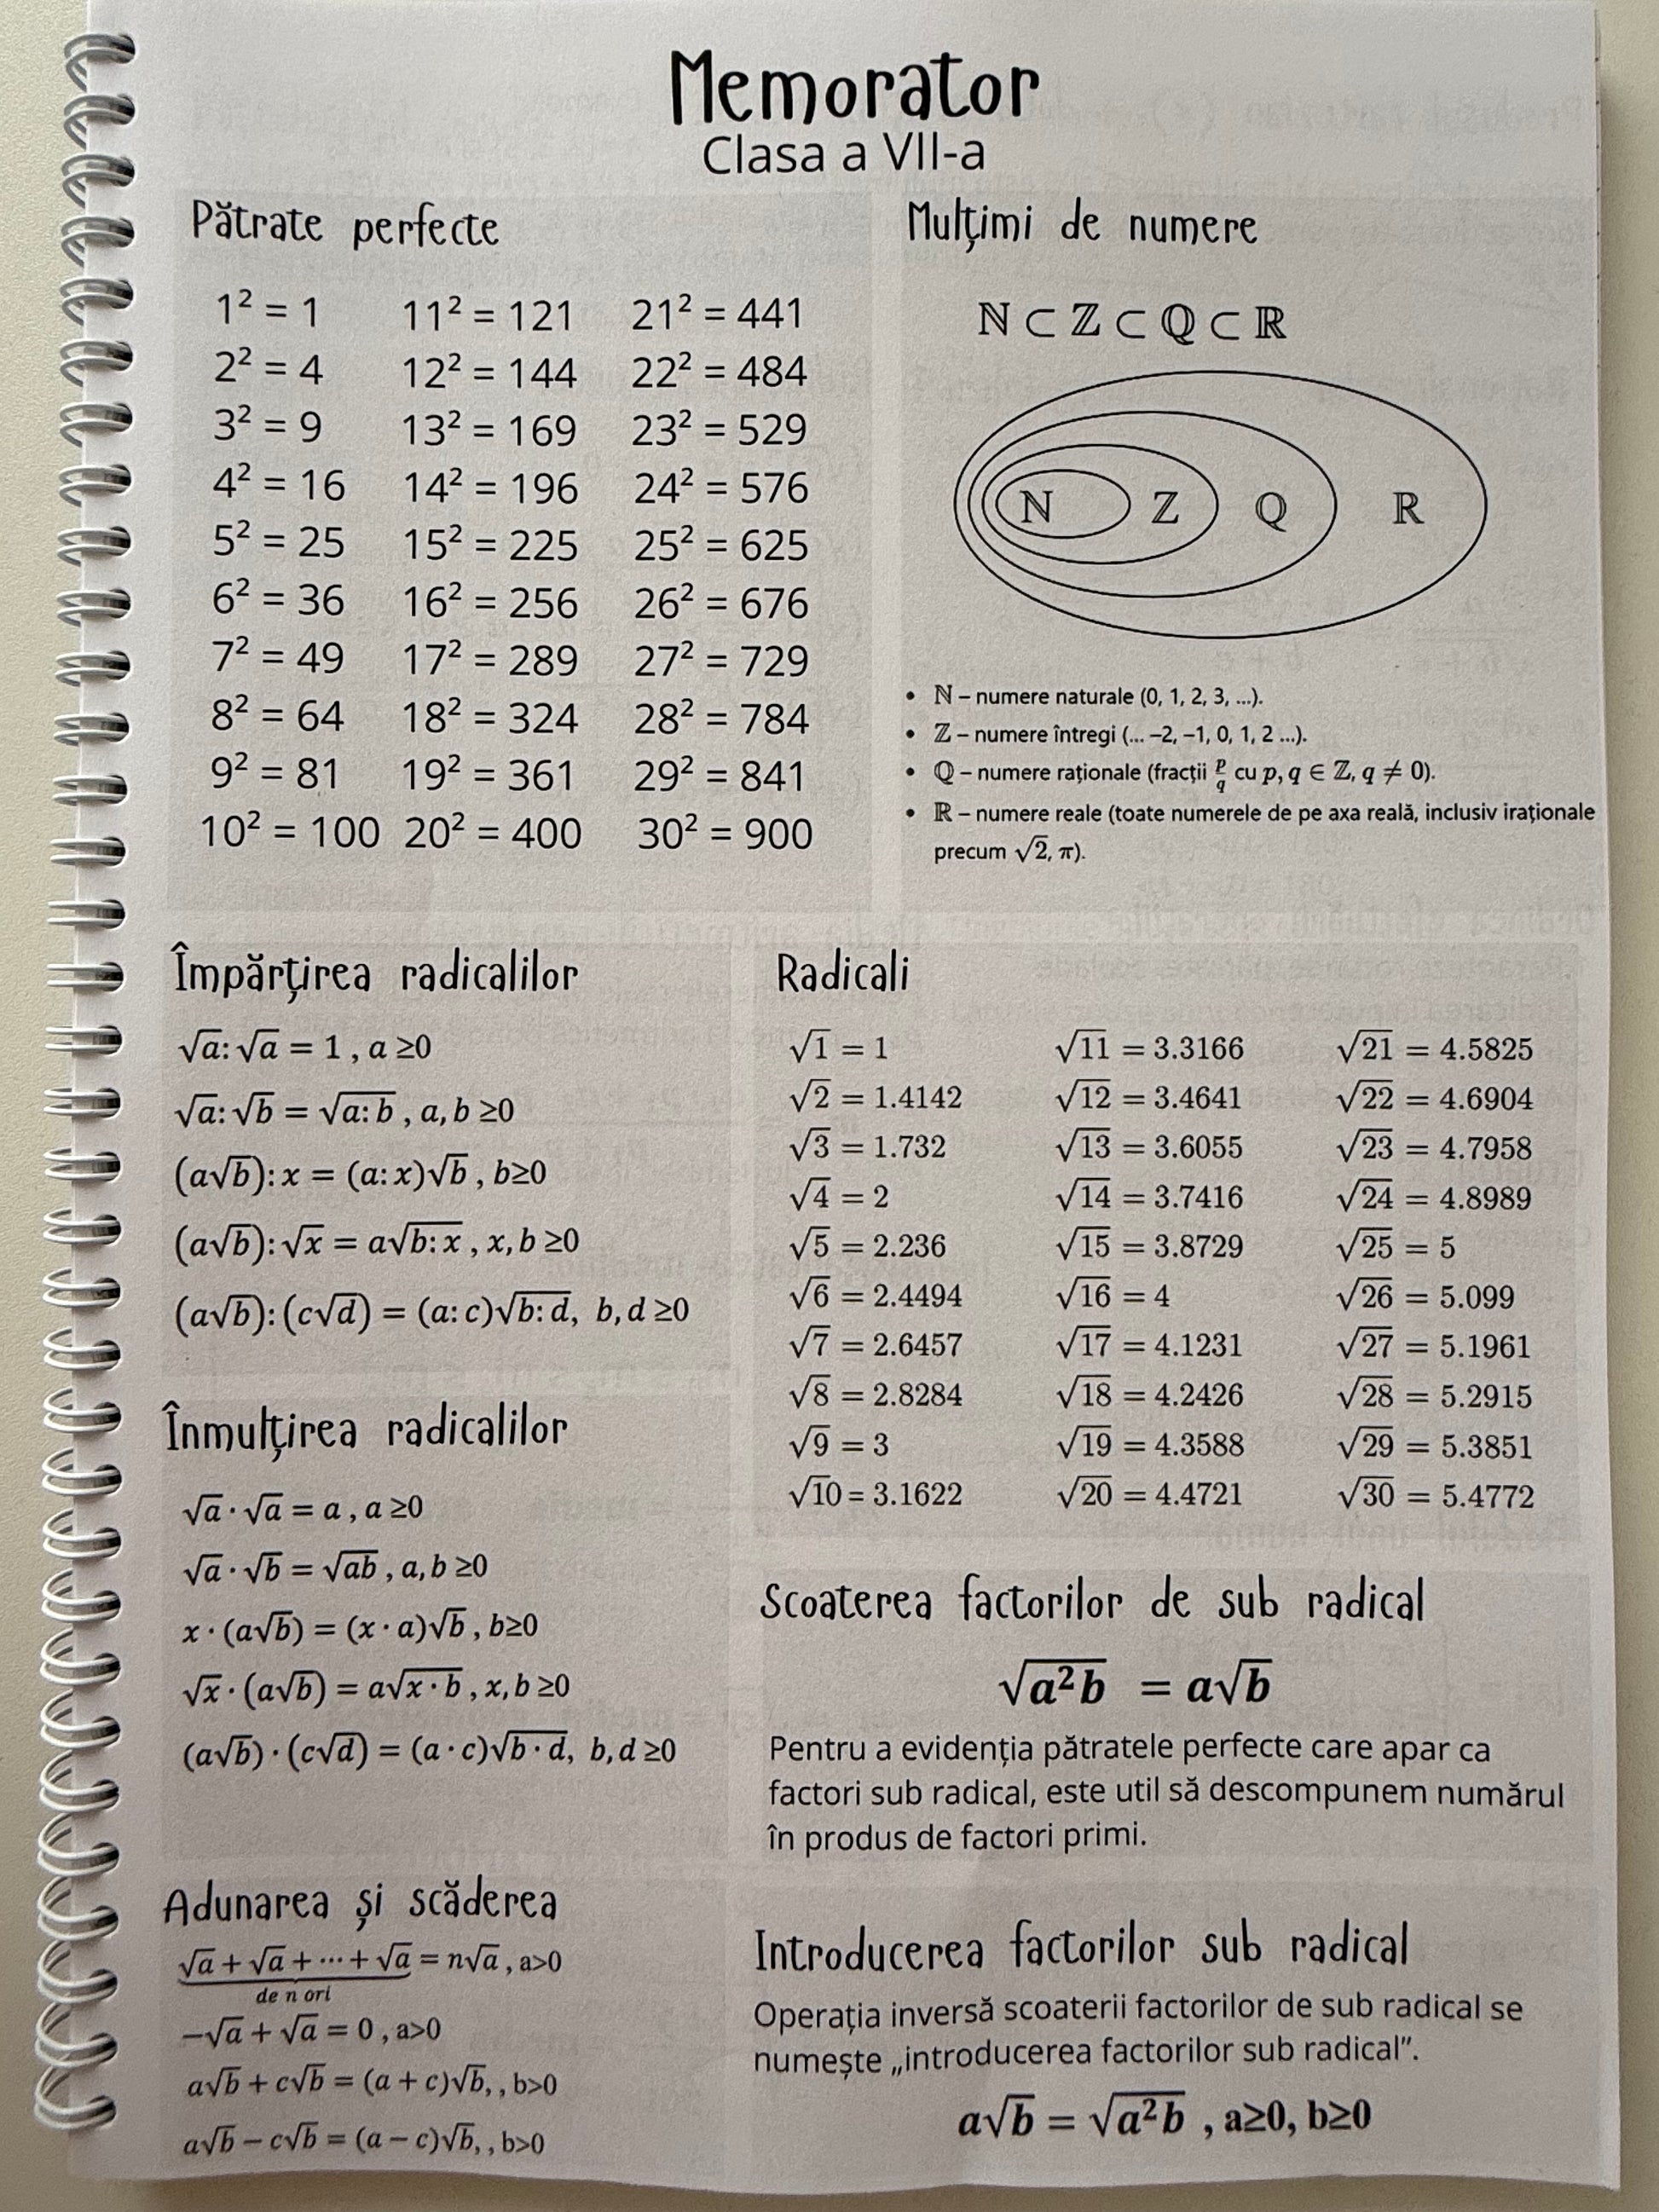 Memorator
Clasa a VII-a
Pătrate perfecte
1² = 1 11² = 121 21² = 441
2² = 4 12² = 144 22² = 484
3² = 9 13² = 169 23² = 529
4² = 16 14² = 196 24² = 576
5² = 25 15² = 225 25² = 625
6² = 36 16² = 256 26² = 676
7² = 49 17² = 289 27² = 729
8² = 64 18² = 324 28² = 784
9² = 81 19² = 361 29² = 841
10² = 100 20² = 400 30² = 900
Mulțimi de numere
ℕ ⊂ ℤ ⊂ ℚ ⊂ ℝ
ℕ ℤ ℚ ℝ
• ℕ – numere naturale (0, 1, 2, 3, ...).
• ℤ – numere întregi (... –2, –1, 0, 1, 2 ...).
• ℚ – numere raționale (fracții p/q cu p, q ∈ ℤ, q ≠ 0).
• ℝ – numere reale (toate numerele de pe axa reală, inclusiv iraționale
precum √2, π).
Împărțirea radicalilor
√a:√a = 1 , a ≥0
√a:√b = √(a:b) , a, b ≥0
(a√b):x = (a:x)√b , b≥0
(a√b):√x = a√(b:x) , x, b ≥0
(a√b):(c√d) = (a:c)√(b:d), b, d ≥0
Radicali
√1 = 1 √11 = 3.3166 √21 = 4.5825
√2 = 1.4142 √12 = 3.4641 √22 = 4.6904
√3 = 1.732 √13 = 3.6055 √23 = 4.7958
√4 = 2 √14 = 3.7416 √24 = 4.8989
√5 = 2.236 √15 = 3.8729 √25 = 5
√6 = 2.4494 √16 = 4 √26 = 5.099
√7 = 2.6457 √17 = 4.1231 √27 = 5.1961
√8 = 2.8284 √18 = 4.2426 √28 = 5.2915
√9 = 3 √19 = 4.3588 √29 = 5.3851
√10 = 3.1622 √20 = 4.4721 √30 = 5.4772
Înmulțirea radicalilor
√a · √a = a , a ≥0
√a · √b = √(ab) , a, b ≥0
x · (a√b) = (x · a)√b , b≥0
√x · (a√b) = a√(x · b) , x, b ≥0
(a√b) · (c√d) = (a · c)√(b · d), b, d ≥0
Scoaterea factorilor de sub radical
√(a²b) = a√b
Pentru a evidenția pătratele perfecte care apar ca
factori sub radical, este util să descompunem numărul
în produs de factori primi.
Adunarea și scăderea
√a + √a + ⋯ + √a = n√a , a>0
de n ori
−√a + √a = 0 , a>0
a√b + c√b = (a + c)√b, , b>0
a√b − c√b = (a − c)√b, , b>0
Introducerea factorilor sub radical
Operația inversă scoaterii factorilor de sub radical se
numește „introducerea factorilor sub radical”.
a√b = √(a²b) , a≥0, b≥0